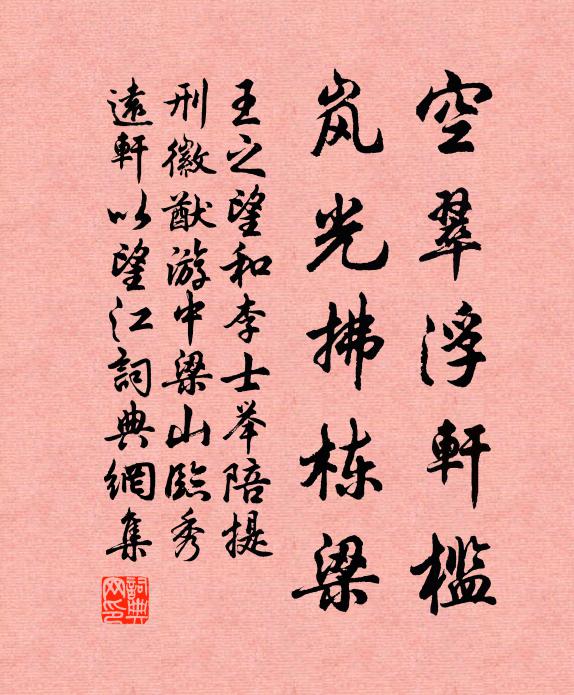 空翠浮軒檻
岚光拂栋梁
王之望和李士举陪提
刑徽猷游中梁山临秀
遠軒以望江詞典網集
詞典
网印